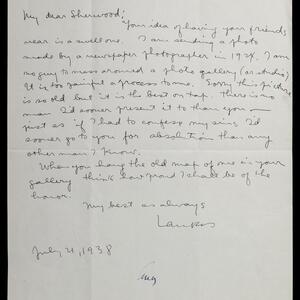 My dear Sherwood:
Your idea of having your friends
near is a swell one. I am sending a photo
made by a newspaper photographer in 1924. I am
no guy to mess around a photo gallery (or studio).
It is too painful a process to me. Sorry this picture
is so old but it is the best on tap. There is no
man I'd sooner present it to than you
just as if I had to confess my sins I'd
sooner go to you for absolution than any
other man I know.
When you hang the old map of me in your
gallery think how proud I shall be of the
honor.
My best as always
July 21, 1938